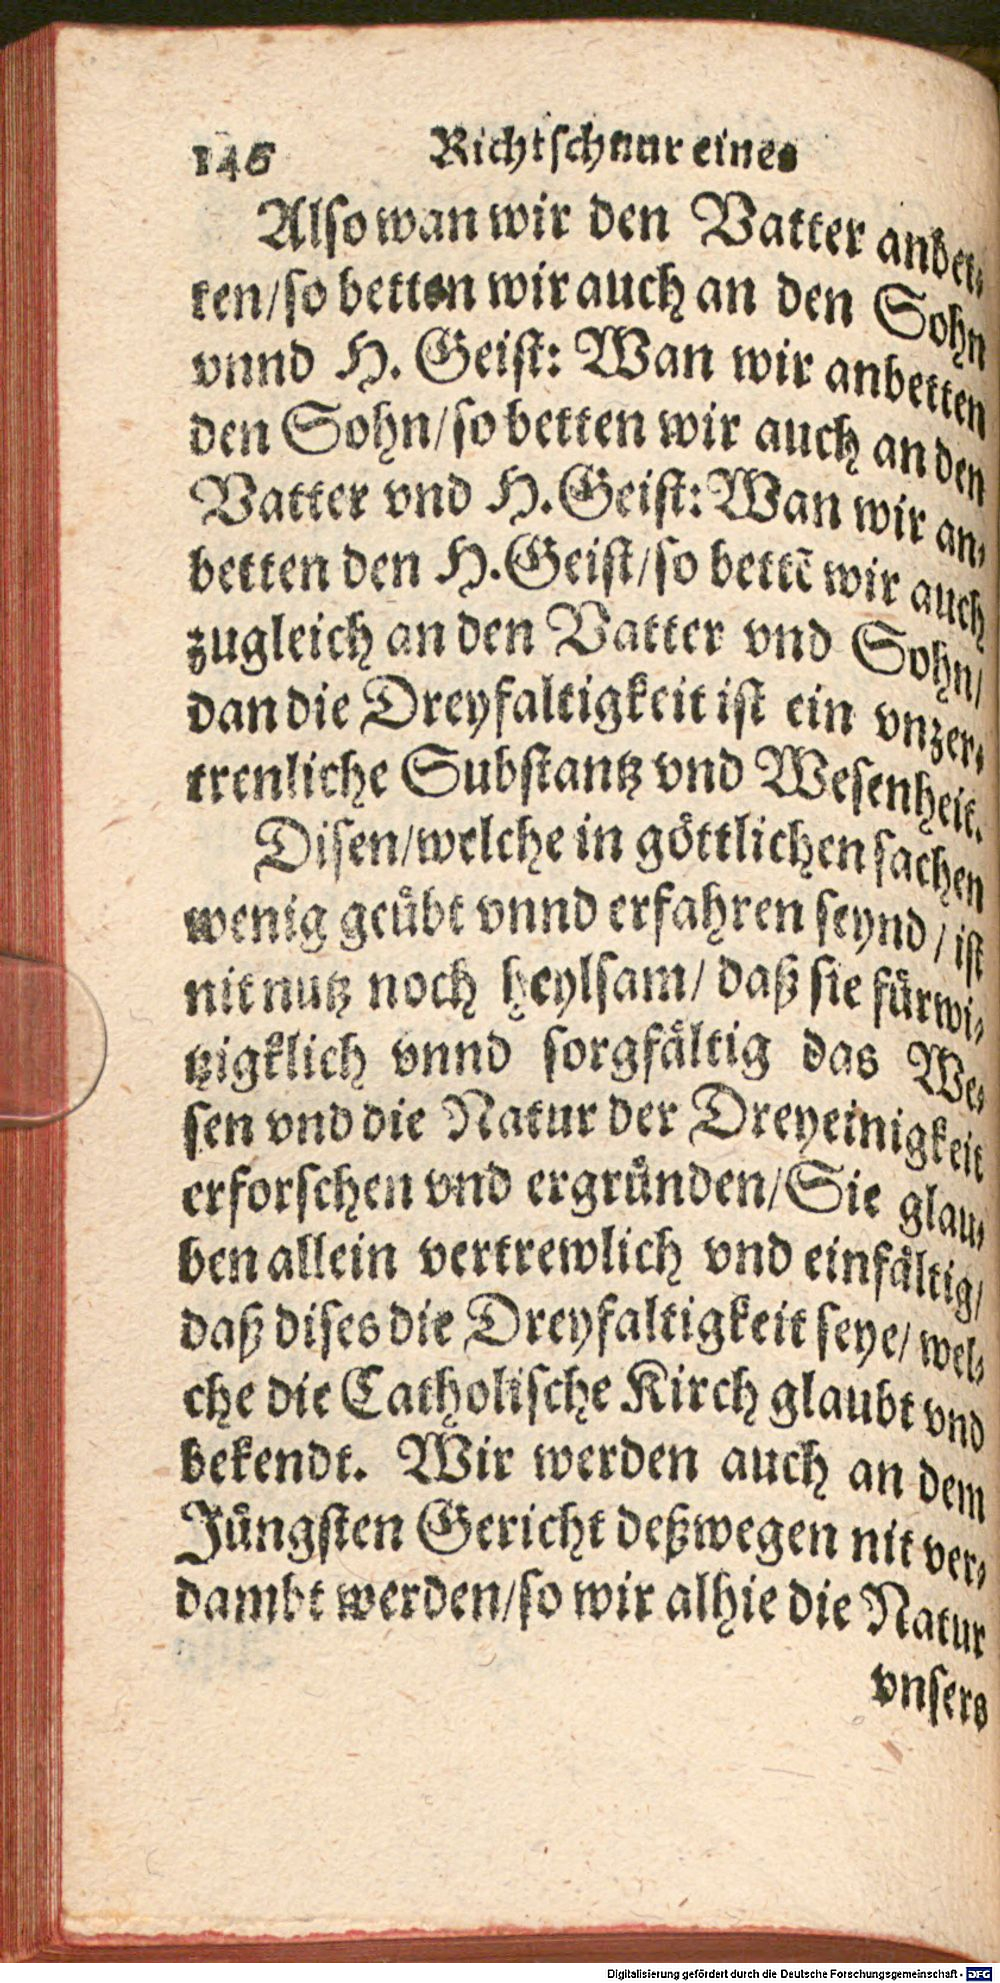 146 Richtschnur eines
Also wan wir den Vatter anbet-
ten/so betten wir auch an den Sohn
vnnd H. Geist: Wan wir anbetten
den Sohn/so betten wir auch an den
Vatter vnd H. Geist: Wan wir an-
betten den H. Geist/so bettē wir auch
zugleich an den Vatter vnd Sohn/
dan die Dreyfaltigkeit ist ein vnzer-
trenliche Substantz vnd Wesenheit.
Disen/welche in göttlichen sachen
wenig geübt vnnd erfahren seynd/ist
nit nutz noch heylsam/daß sie fürwi-
tzigklich vnnd sorgfältig das We-
sen vnd die Natur der Dreyeinigkeit
erforschen vnd ergründen/Sie glau-
ben allein vertrewlich vnd einfältig/
daß dises die Dreyfaltigkeit seye/wel-
che die Catholische Kirch glaubt vnd
bekendt. Wir werden auch an dem
Jüngsten Gericht deßwegen nit ver-
dambt werden/so wir alhie die Natur
vnsers
Digitalisierung gefördert durch die Deutsche Forschungsgemeinschaft - DFG